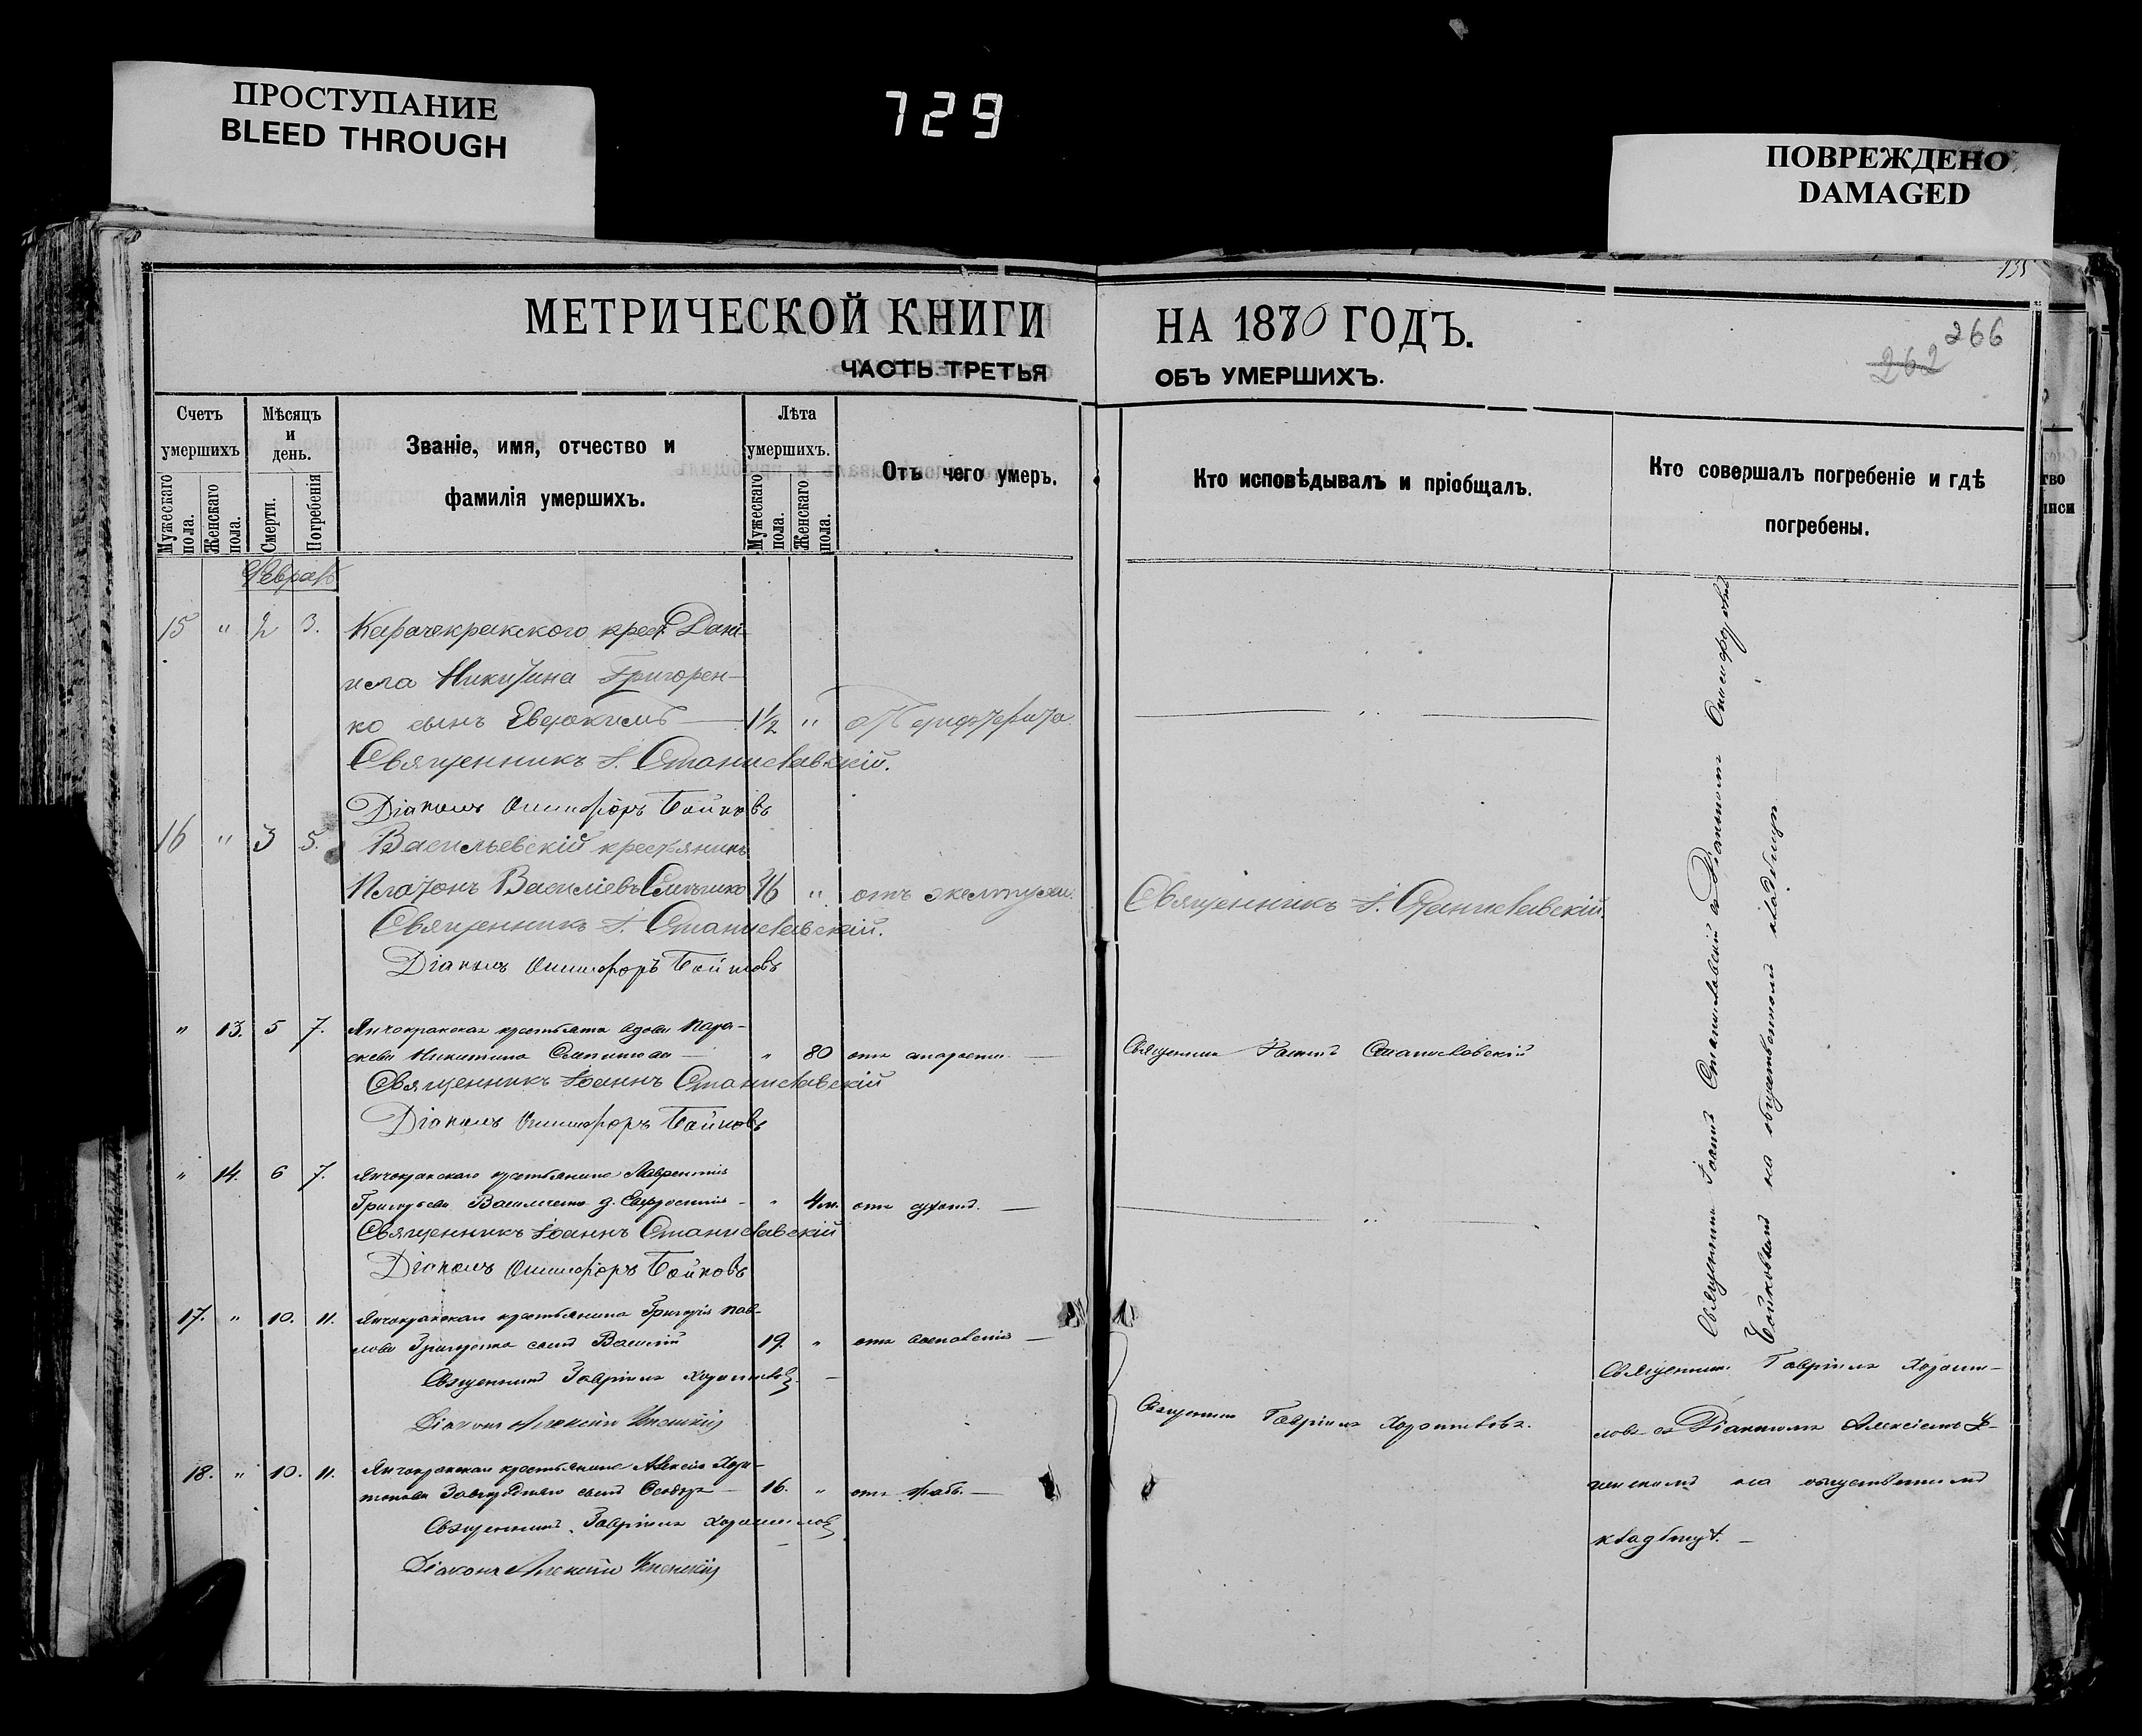 ПРОСТУПАНИЕ
BLEED THROUGH
729
ПОВРЕЖДЕНО
DAMAGED
135
МЕТРИЧЕСКОЙ КНИГИ НА 1870 ГОДЪ.
266
262
ЧАСТЬ ТРЕТЬЯ ОБЪ УМЕРШИХЪ.
Счетъ умершихъ
Мужескаго пола.
Женскаго пола.
Мѣсяцъ и день.
Смерти.
Погребенія
Званіе, имя, отчество и
фамилія умершихъ.
Лѣта умершихъ.
Мужескаго пола.
Женскаго пола.
Отъ чего умеръ.
Кто исповѣдывалъ и пріобщалъ.
Кто совершалъ погребеніе и гдѣ
погребены.
Февраль
15 " 2 3. Карачекракского крест. Дани-
ила Никитина Григорен-
ко сынъ Евдокимъ — 1½ "
Священникъ І. Станиславскій.
Діаконъ Онисифоръ Бойковъ
16 " 3 5. Васильевскій крестьянинъ
Платонъ Василіевъ "
Священникъ І. Станиславскій. Священникъ І. Станиславскій.
Діаконъ Онисифоръ Бойковъ
" 13. 5 7. Янчокракская вдова Пара-
скева Никитина — " 80 отъ старости — Священникъ Іоаннъ Станиславскій
Священникъ Іоаннъ Станиславскій
Діаконъ Онисифоръ Бойковъ
" 14. 6 7. Янчокракскаго крестьянина Лаврентія
Григорьева д. Евфросинія — " 4 м. отъ —
Священникъ Іоаннъ Станиславскій
Діаконъ Онисифоръ Бойковъ
Священникъ Іоаннъ Станиславскій съ Діакономъ Онисифоромъ
Бойковымъ на общественномъ кладбищѣ
17. " 10. 11. Янчокракскаго крестьянина Григорія Пав-
лова сынъ Василій 19. " отъ —
Священникъ Гавріилъ
Діаконъ Алексій
18. " 10. 11. Янчокракскаго крестьянина Алексія Хари-
тонова сынъ Ѳеодоръ — 16. " отъ —
Священникъ Гавріилъ
Діаконъ Алексій
Священникъ Гавріилъ
Священникъ Гавріилъ
съ Діакономъ Алексіемъ
на общественномъ
кладбищѣ. —